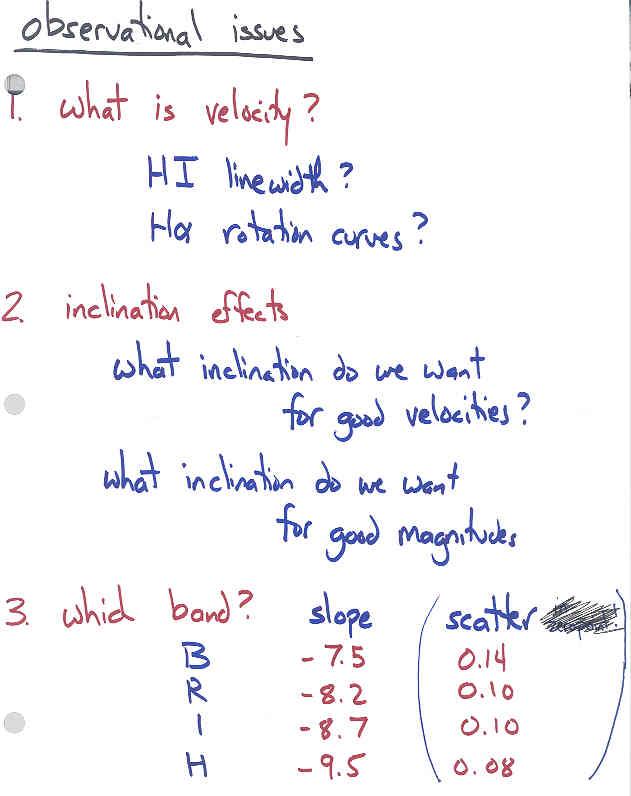 observational issues
1. what is velocity?
HI linewidth?
Hα rotation curves?
2. inclination effects
what inclination do we want
for good velocities?
what inclination do we want
for good magnitudes
3. which band? slope (scatter
B -7.5 0.14
R -8.2 0.10
I -8.7 0.10
H -9.5 0.08)